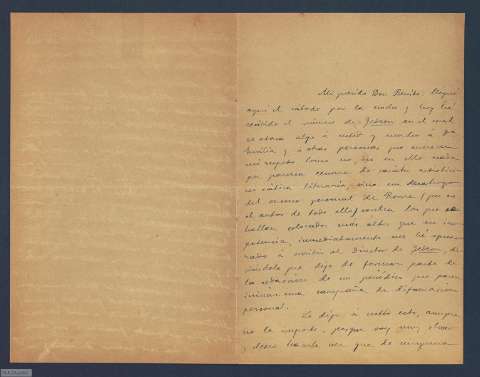 Mi querido Don Benito: Llegué
aquí el sábado por la noche y hoy he
recibido el número de Jesson en el cual
se ataca algo á usted y mucho á Da
Emilia y á otras personas que merecen
mi respeto. Como no veo en ello nada
que parezca de
crítica literaria, sino un desahogo
del personal de (que es
el autor de todo ello) contra los que se
hallan colocados más altos que su im-
potencia, inmediatamente me he apresu-
rado á escribir al Director de Jesson, di-
ciéndole que dejo de formar parte de
la redacción de un periódico que parece
iniciar una campaña de difamación
personal.
Le digo á usted esto, aunque
no le importe, porque soy muy claro
y deseo hacerle ver que de ninguna